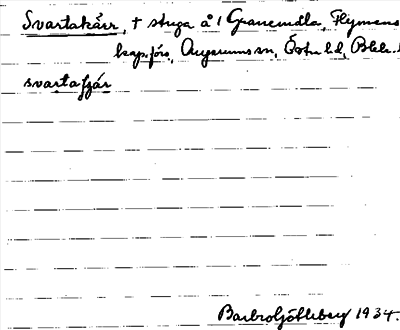 Svartakärr, † stuga å 1 Granemåla, Flymens
kapsförs., Augerums sn, Östra hd, Blek.
svartaɕär
Barbro Götleberg 1934.